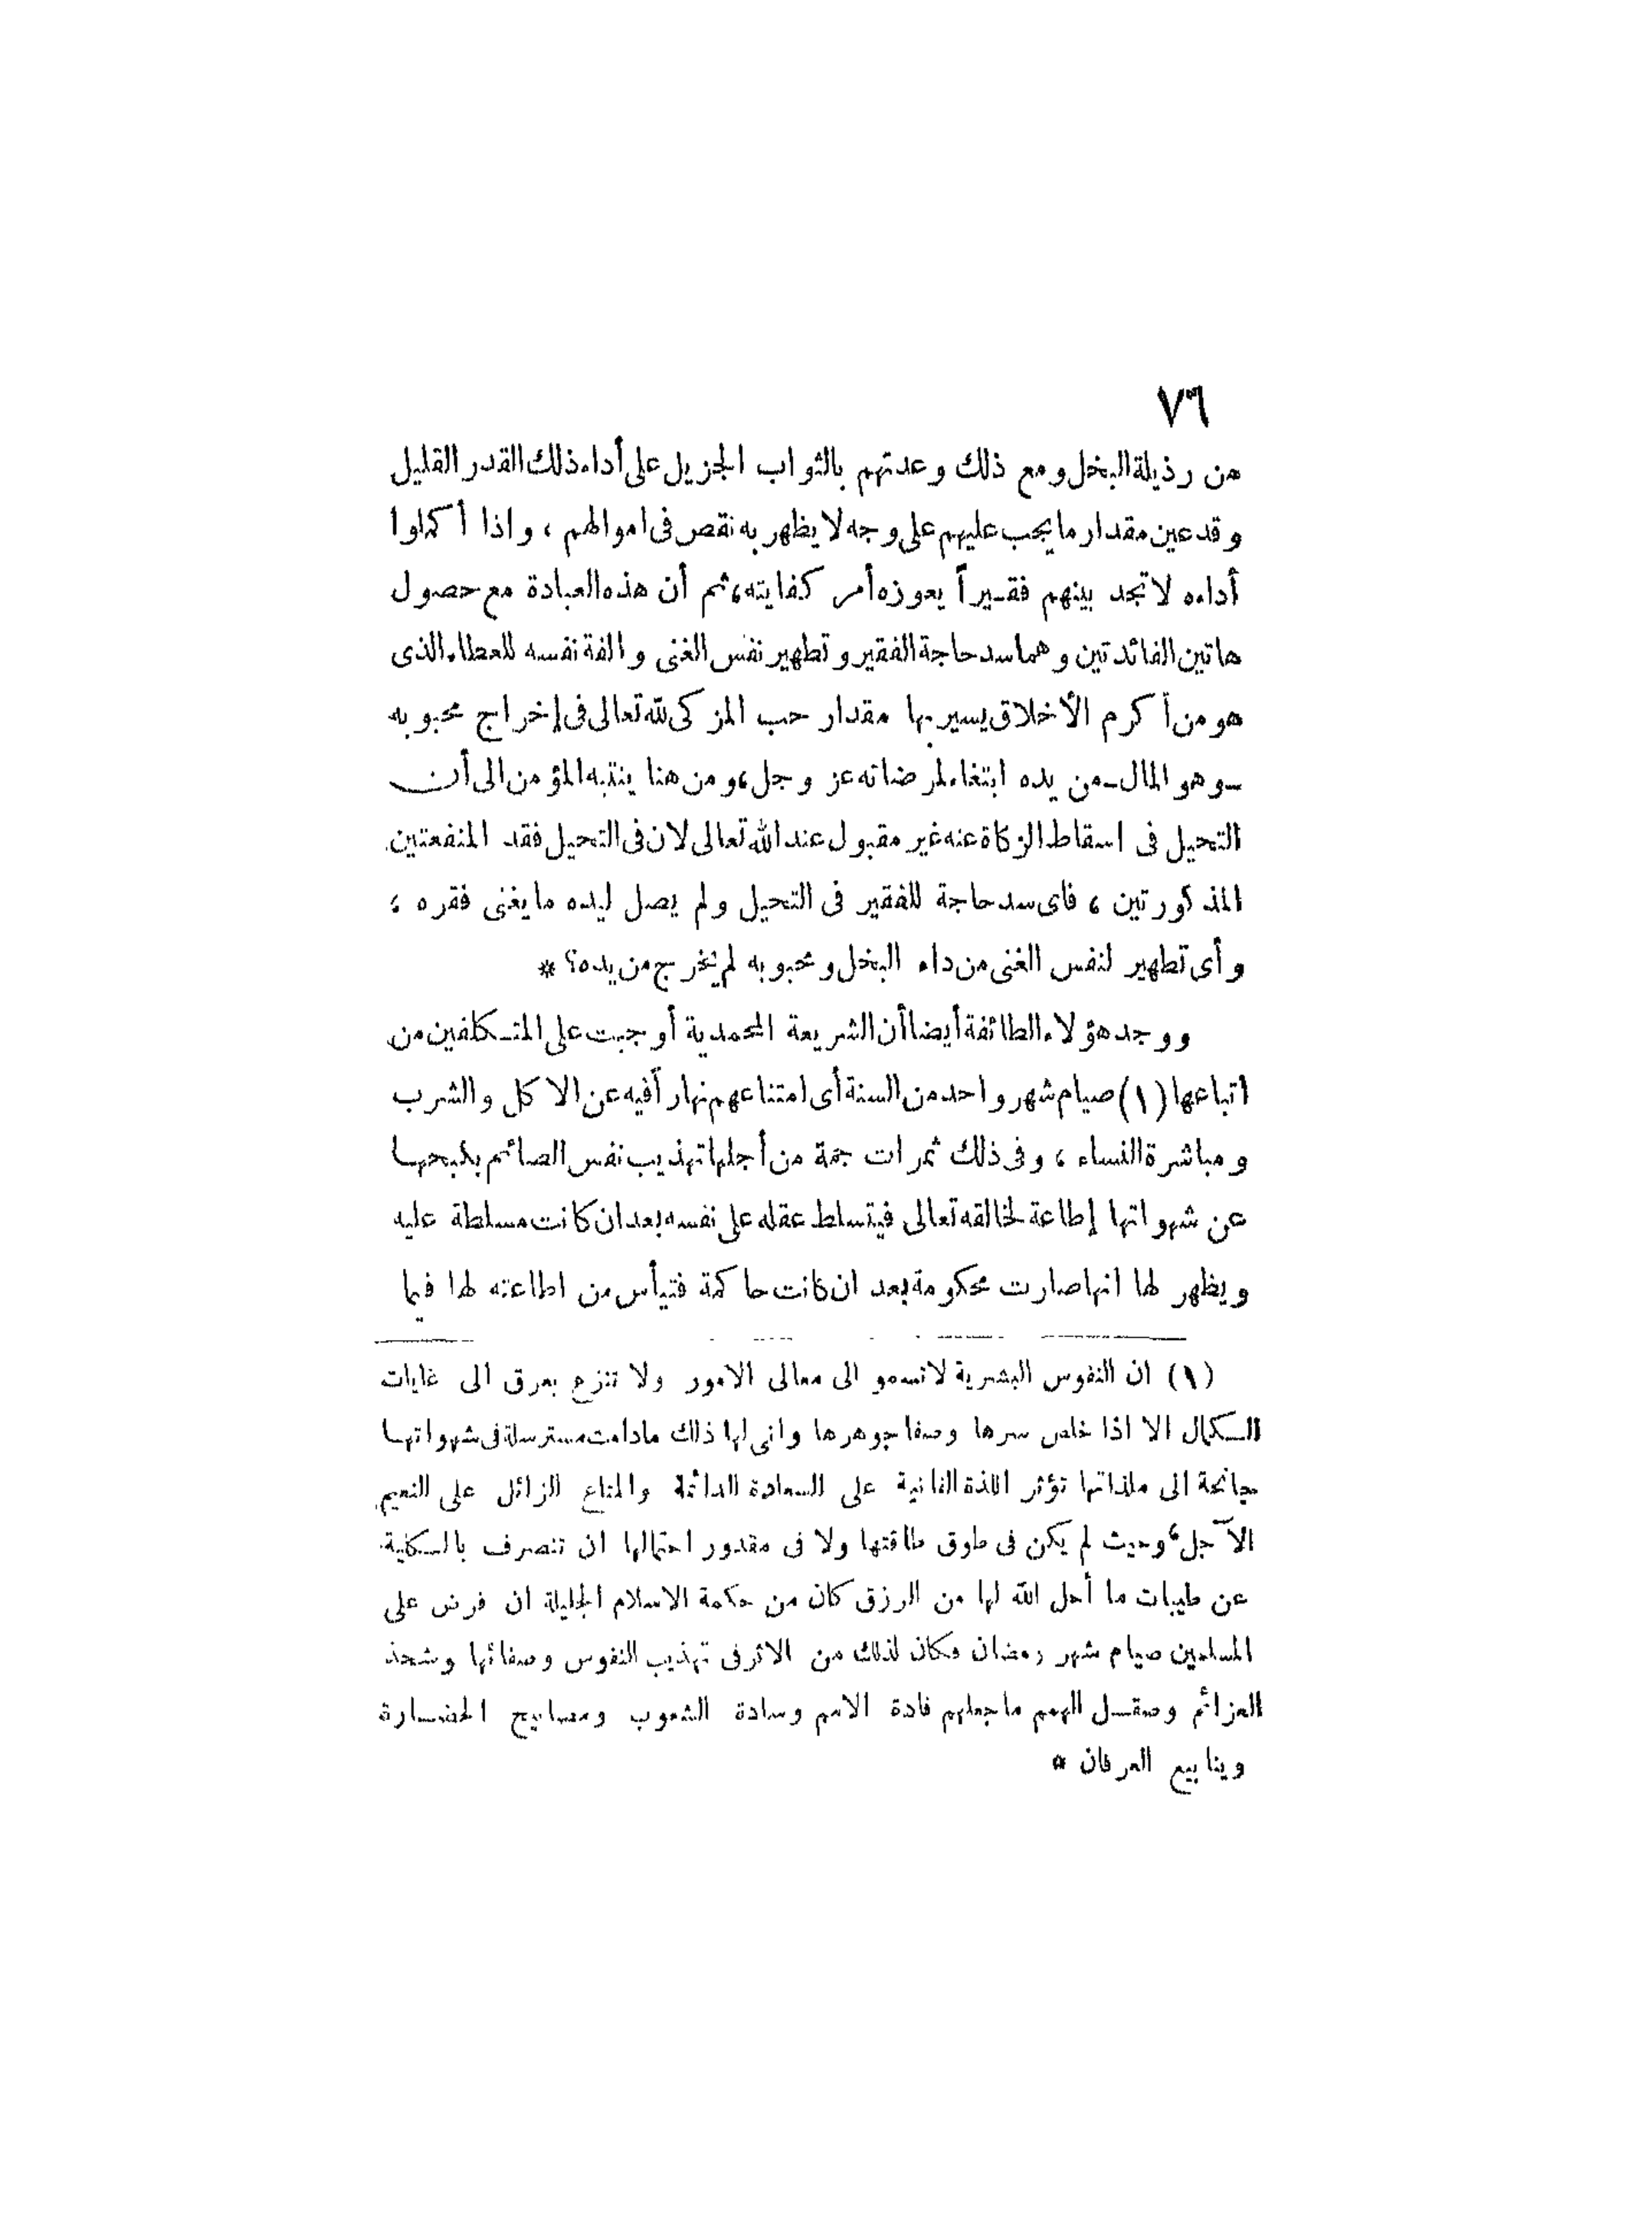 ٧٦
من رذيلة البخل ومع ذلك وعدتهم بالثواب الجزيل على أداء ذلك القدر القليل
وقد عين مقدار ما يجب عليهم على وجه لا يظهر به نقص فى اموالهم ، واذا أكملوا
أداءه لا تجد بينهم فقيراً يعوزه أمر كفايته، ثم أن هذه العبادة مع حصول
هاتين الفائدتين وهما سد حاجة الفقير وتطهير نفس الغنى والفة نفسه للعطاء الذى
هو من أكرم الأخلاق يسير بها مقدار حب المزكى لله تعالى فى إخراج محبوبه
ـ وهو المال ـ من يده ابتغاء لمرضاته عز وجل، ومن هنا ينتبه المؤمن الى أن
التحيل فى اسقاط الزكاة عنه غير مقبول عند الله تعالى لان فى التحيل فقد المنفعتين
المذكورتين ، فاى سد حاجة للفقير فى التحيل ولم يصل ليده ما يغنى فقره ،
وأى تطهير لنفس الغنى من داء البخل ومحبوبه لم يخرج من يده؟ *
ووجد هؤلاء الطائفة أيضا أن الشريعة المحمدية أوجبت على المتكلفين من
اتباعها (١) صيام شهر واحد من السنة أى امتناعهم نهاراً فيه عن الاكل والشرب
ومباشرة النساء ، وفى ذلك ثمرات جمة من أجلها تهذيب نفس الصائم بكبحها
عن شهواتها إطاعة لخالقه تعالى فيتسلط عقله على نفسه بعد ان كانت مسلطة عليه
ويظهر لها انها صارت محكومة بعد ان كانت حاكمة فتيأس من اطاعته لها فيما
(١) ان النفوس البشرية لا تسمو الى معالى الامور ولا تنزع بعرق الى غايات
الكمال الا اذا خلص سرها وصفا جوهرها وانى لها ذلك مادامت مسترسلة فى شهواتها
جانحة الى ملذاتها تؤثر اللذة الفانية على السعادة الدائمة والمتاع الزائل على النعيم
الآجل، وحيث لم يكن فى طوق طاقتها ولا فى مقدور احتمالها ان تنصرف بالكلية
عن طيبات ما أحل الله لها من الرزق كان من حكمة الاسلام الجليلة ان فرض على
المسلمين صيام شهر رمضان فكان لذلك من الاثر فى تهذيب النفوس وصفائها وشحذ
العزائم وصقل الهمم ما جعلهم قادة الامم وسادة الشعوب ومصابيح الحضارة
وينابيع العرفان *